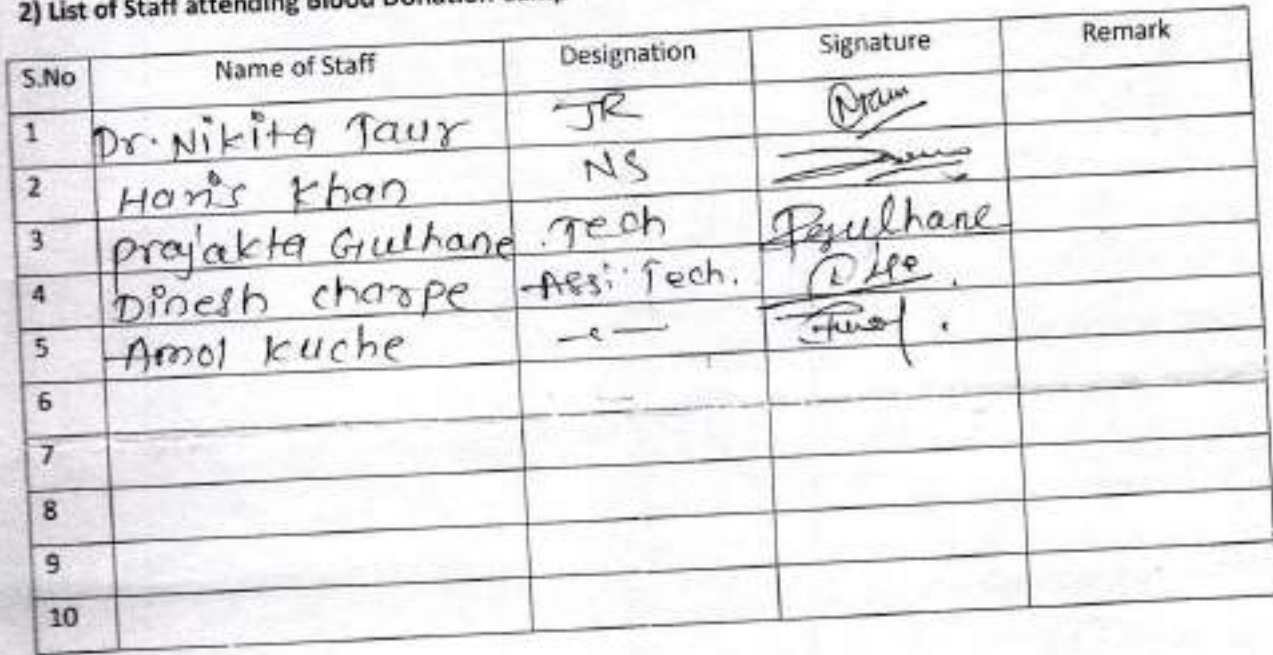 2) List of Staff attending Blood Donation
S.No Name of Staff Designation Signature Remark
1 Dr. Nikita Taur JR
2 Haris Khan NS
3 Prajakta Gulhane Tech Pgulhane
4 Dinesh charpe Assi. Tech.
5 Amol Kuche —〃—
6
7
8
9
10